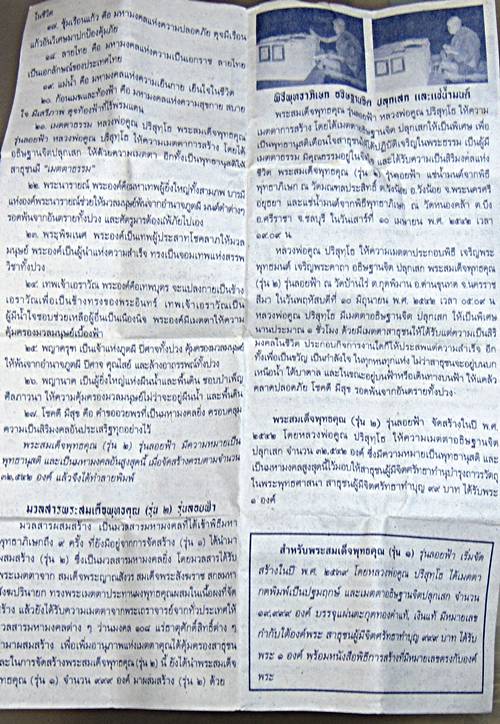 ในชีวิต
๑๗. ซุ้มเรือนแก้ว คือ มหามงคลแห่งความปลอดภัย ดุจมีเรือน
แก้วอันวิเศษมาปกป้องคุ้มภัย
๑๘. ลายไทย คือ มหามงคลแห่งความเป็นเอกราช ลายไทย
เป็นเอกลักษณ์ของประเทศไทย
๑๙. แม่น้ำ คือ มหามงคลแห่งความเย็นกาย เย็นใจในชีวิต
๒๐. ก้อนเมฆและท้องฟ้า คือ มหามงคลแห่งความสุขกาย สบาย
ใจ มีเสรีภาพ ดุจท้องฟ้าที่ไร้พรมแดน
๒๑. เมตตาธรรม หลวงพ่อคูณ ปริสุทโธ พระสมเด็จพุทธคุณ
รุ่นลอยฟ้า หลวงพ่อคูณ ปริสุทโธ ให้ความเมตตาการสร้าง โดยได้
อธิษฐานจิตปลุกเสก ให้ด้วยความเมตตา อีกทั้งเป็นพุทธานุสติให้
สาธุชนมี "เมตตาธรรม"
๒๒. พระนารายณ์ พระองค์คือมหาเทพผู้ยิ่งใหญ่ทั้งสามภพ บารมี
แห่งองค์พระนารายณ์ช่วยให้มวลมนุษย์พ้นจากอำนาจภูตผี มนต์ดำต่างๆ
รอดพ้นจากอันตรายทั้งปวง และศัตรูมารต้องแพ้ภัยไปเอง
๒๓. พระพิฆเนศ พระองค์เป็นเทพผู้ประสาทโชคลาภให้มวล
มนุษย์ พระองค์เป็นผู้นำแห่งความสำเร็จ ทรงเป็นจอมเทพแห่งสรรพ
วิชาทั้งปวง
๒๔. เทพเจ้าเอราวัณ พระองค์คือเทพบุตร จะแปลงกายเป็นช้าง
เอราวัณเพื่อเป็นช้างทรงของพระอินทร์ เทพเจ้าเอราวัณเป็น
ผู้มีน้ำใจชอบช่วยเหลือผู้อื่นเป็นเนืองนิจ พระองค์มีเมตตาให้ความ
คุ้มครองมวลมนุษย์เบื้องฟ้า
๒๕. พญาครุฑ เป็นเจ้าแห่งภูตผี ปีศาจทั้งปวง คุ้มครองมวลมนุษย์
ให้พ้นจากอำนาจภูตผี ปีศาจ คุณไสย์ และล้างอาถรรพณ์ทั้งปวง
๒๖. พญานาค เป็นผู้ยิ่งใหญ่แห่งผืนน้ำและพื้นดิน ชอบบำเพ็ญ
ศีลภาวนา ให้ความคุ้มครองมวลมนุษย์ไม่ว่าจะอยู่ผืนน้ำ และพื้นดิน
๒๗. โชคดี มีสุข คือ คำขออวยพรที่เป็นมหามงคลยิ่ง ครอบคลุม
ความเป็นสิริมงคลอันประเสริฐทุกอย่างไว้
พระสมเด็จพุทธคุณ (รุ่น ๒) รุ่นลอยฟ้า มีความหมายเป็น
พุทธานุสติ และเป็นมหามงคลอันสูงสุดนี้ เมื่อจัดสร้างครบตามจำนวน
๓๒,๕๔๒ องค์ แล้วจึงได้ทำลายพิมพ์
มวลสารพระสมเด็จพุทธคุณ (รุ่น ๒) รุ่นลอยฟ้า
มวลสารผสมสร้าง เป็นมวลสารมหามงคลที่ได้เข้าพิธีมหา
พุทธาภิเษกถึง ๙ ครั้ง ที่ยังมีอยู่จากการจัดสร้าง (รุ่น ๑) ได้นำมา
ผสมสร้าง (รุ่น ๒) ซึ่งเป็นมวลสารมหามงคลยิ่ง โดยมวลสารได้รับ
พระเมตตาจาก สมเด็จพระญาณสังวร สมเด็จพระสังฆราช สกลมหา
สังฆปรินายก ทรงพระเมตตาประทานผงพุทธคุณผสมในเนื้อผงที่จัด
สร้าง แล้วยังได้รับความเมตตาจากพระเถราจารย์จากทั่วประเทศให้
มวลสารมหามงคลต่าง ๆ ว่านมงคล ๑๐๘ แร่ธาตุศักดิ์สิทธิ์ต่าง ๆ
นำมาผสมสร้าง เพื่อเพิ่มอานุภาพแห่งเมตตาคุณได้คุ้มครองสาธุชน
และในการจัดสร้างพระสมเด็จพุทธคุณ (รุ่น ๒) นี้ ยังได้นำพระสมเด็จ
พุทธคุณ (รุ่น ๑) จำนวน ๙๙๙ องค์ มาผสมสร้าง (รุ่น ๒) ด้วย
พิธีพุทธาภิเษก อธิษฐานจิต ปลุกเสก และแผ่น้ำมนต์
พระสมเด็จพุทธคุณ รุ่นลอยฟ้า หลวงพ่อคูณ ปริสุทโธ ให้ความ
เมตตาการสร้าง โดยได้เมตตาอธิษฐานจิต ปลุกเสกให้เป็นพิเศษ เพื่อ
เป็นพุทธานุสติเตือนใจสาธุชนได้ปฏิบัติเจริญในพระธรรม เป็นผู้มี
เมตตาธรรม มีคุณธรรมอยู่ในจิต และได้รับความเป็นสิริมงคลแห่ง
ชีวิต พระสมเด็จพุทธคุณ (รุ่น ๒) รุ่นลอยฟ้า แช่น้ำมนต์จากพิธี
พุทธาภิเษก ณ วัดมณฑลประสิทธิ์ ต.วังน้อย อ.วังน้อย จ.พระนครศรี
อยุธยา และแช่น้ำมนต์จากพิธีพุทธาภิเษก ณ วัดหนองคล้า ต.บึง
อ.ศรีราชา จ.ชลบุรี ในวันเสาร์ที่ ๑๐ เมษายน พ.ศ. ๒๕๔๒ เวลา
๑๙.๐๙ น.
หลวงพ่อคูณ ปริสุทโธ ให้ความเมตตาประกอบพิธี เจริญพระ
พุทธมนต์ เจริญพระคาถา อธิษฐานจิต ปลุกเสก พระสมเด็จพุทธคุณ
(รุ่น ๒) รุ่นลอยฟ้า ณ วัดบ้านไร่ ต.กุดพิมาน อ.ด่านขุนทด จ.นครราช
สีมา ในวันพฤหัสบดีที่ ๑๐ มิถุนายน พ.ศ. ๒๕๔๒ เวลา ๐๕.๐๙ น.
หลวงพ่อคูณ ปริสุทโธ มีเมตตาอธิษฐานจิต ปลุกเสก ให้เป็นพิเศษ
นานประมาณ ๑ ชั่วโมง ด้วยมีเมตตาสาธุชนให้ได้รับแต่ความเป็นสิริ
มงคลในชีวิต ประกอบกิจการงานใดก็ให้ประสพแต่ความสำเร็จ อีก
ทั้งเพื่อเป็นขวัญ เป็นกำลังใจ ในทุกหนทุกแห่ง ไม่ว่าสาธุชนจะอยู่บนบก
เหนือน้ำ ใต้บาดาล และในขณะอยู่บนฟ้าหรือเดินทางบนฟ้า ให้แคล้ว
คลาดปลอดภัย โชคดี มีสุข รอดพ้นจากอันตรายทั้งปวง
พระสมเด็จพุทธคุณ (รุ่น ๒) รุ่นลอยฟ้า จัดสร้างในปี พ.ศ.
๒๕๔๒ โดยหลวงพ่อคูณ ปริสุทโธ ให้ความเมตตาอธิษฐานจิต
ปลุกเสก จำนวน ๓๒,๕๔๒ องค์ ซึ่งมีความหมายเป็นพุทธานุสติ และ
เป็นมหามงคลสูงสุดนี้ไว้มอบให้สาธุชนผู้มีจิตศรัทธาทำนุบำรุงถาวรวัตถุ
ในพระพุทธศาสนา สาธุชนผู้มีจิตศรัทธาทำบุญ ๙๙ บาท ได้รับพระ
๑ องค์
สำหรับพระสมเด็จพุทธคุณ (รุ่น ๑) รุ่นลอยฟ้า เริ่มจัด
สร้างในปี พ.ศ. ๒๕๓๙ โดยหลวงพ่อคูณ ปริสุทโธ ได้เมตตา
กดพิมพ์เป็นปฐมฤกษ์ และเมตตาอธิษฐานจิตปลุกเสก จำนวน
๑๙,๙๙๙ องค์ บรรจุแผ่นตะกรุดทองคำแท้, เงินแท้ มีหมายเลข
กำกับใต้องค์พระ สาธุชนผู้มีจิตศรัทธาทำบุญ ๙๙๙ บาท ได้รับ
พระ ๑ องค์ พร้อมหนังสือพิธีการสร้างที่มีหมายเลขตรงกับองค์
พระ